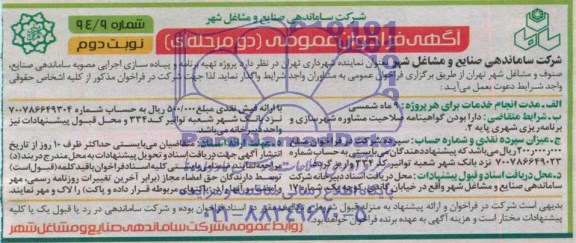 شرکت ساماندهی صنایع و مشاغل شهر
آگهی فراخوان عمومی (دو مرحله‌ای)
شماره ۹۴/۹
نوبت دوم
شرکت ساماندهی صنایع و مشاغل شهر نماینده شهرداری تهران در نظر دارد پروژه تهیه برنامه و پیاده سازی اجرایی مصوبه ساماندهی صنایع،
صنوف و مشاغل شهر تهران از طریق برگزاری فراخوان عمومی به مشاوران واجد شرایط واگذار نماید. لذا جهت شرکت در فراخوان مذکور از کلیه اشخاص حقوقی
واجد شرایط دعوت بعمل می‌آید:
الف. مدت انجام خدمات برای هر پروژه: ۹ ماه شمسی
ب. شرایط متقاضی: دارا بودن گواهینامه صلاحیت مشاوره شهرسازی و
برنامه‌ریزی شهری پایه ۲.
ج. میزان سپرده نقدی و شماره حساب: سپرده شرکت در فراخوان مبلغ
ریال می‌باشد که پیشنهاددهندگان می‌بایستی به حساب شماره
۷۰۰۷۸۶۶۴۹۰۲۳ نزد بانک شهر شعبه توانیر کد ۳۳۴ واریز گردد.
د. محل دریافت اسناد و قبول پیشنهادات: محل دریافت اسناد دبیرخانه شرکت
ساماندهی صنایع و مشاغل شهر واقع در خیابان گاندی، کوچه یک، شماره ۱۷
با ارائه فیش نقدی مبلغ ۵۰۰/۰۰۰ ریال به حساب شماره ۷۰۰۷۸۶۶۴۹۳۰۴
نزد بانک شهر شعبه توانیر کد ۳۳۴ و محل قبول پیشنهادات نیز
واحد دبیرخانه می‌باشد.
متقاضیان می‌بایستی حداکثر ظرف ۱۰ روز از تاریخ
انتشار آگهی جهت دریافت اسناد و تحویل پیشنهادات به محل مندرج در بند (د)
توسط دارندگان حق امضاء مجاز (برابر آخرین تغییرات روزنامه رسمی، مهر
و امضا و آنها را در پاکتهای مربوطه قرار داده و پاکت) را لاک و مهر نمایند.
بدیهی است شرکت در فراخوان و ارائه پیشنهاد به منزله قبول در اسناد فراخوان بوده و شرکت ساماندهی در رد یا قبول یک یا کلیه
پیشنهادات مختار است و هزینه آگهی به عهده برنده فراخوان خواهد بود.
روابط عمومی شرکت ساماندهی صنایع و مشاغل شهر
۰۲۱-۸۸۳۴۹۶۷۰-۵